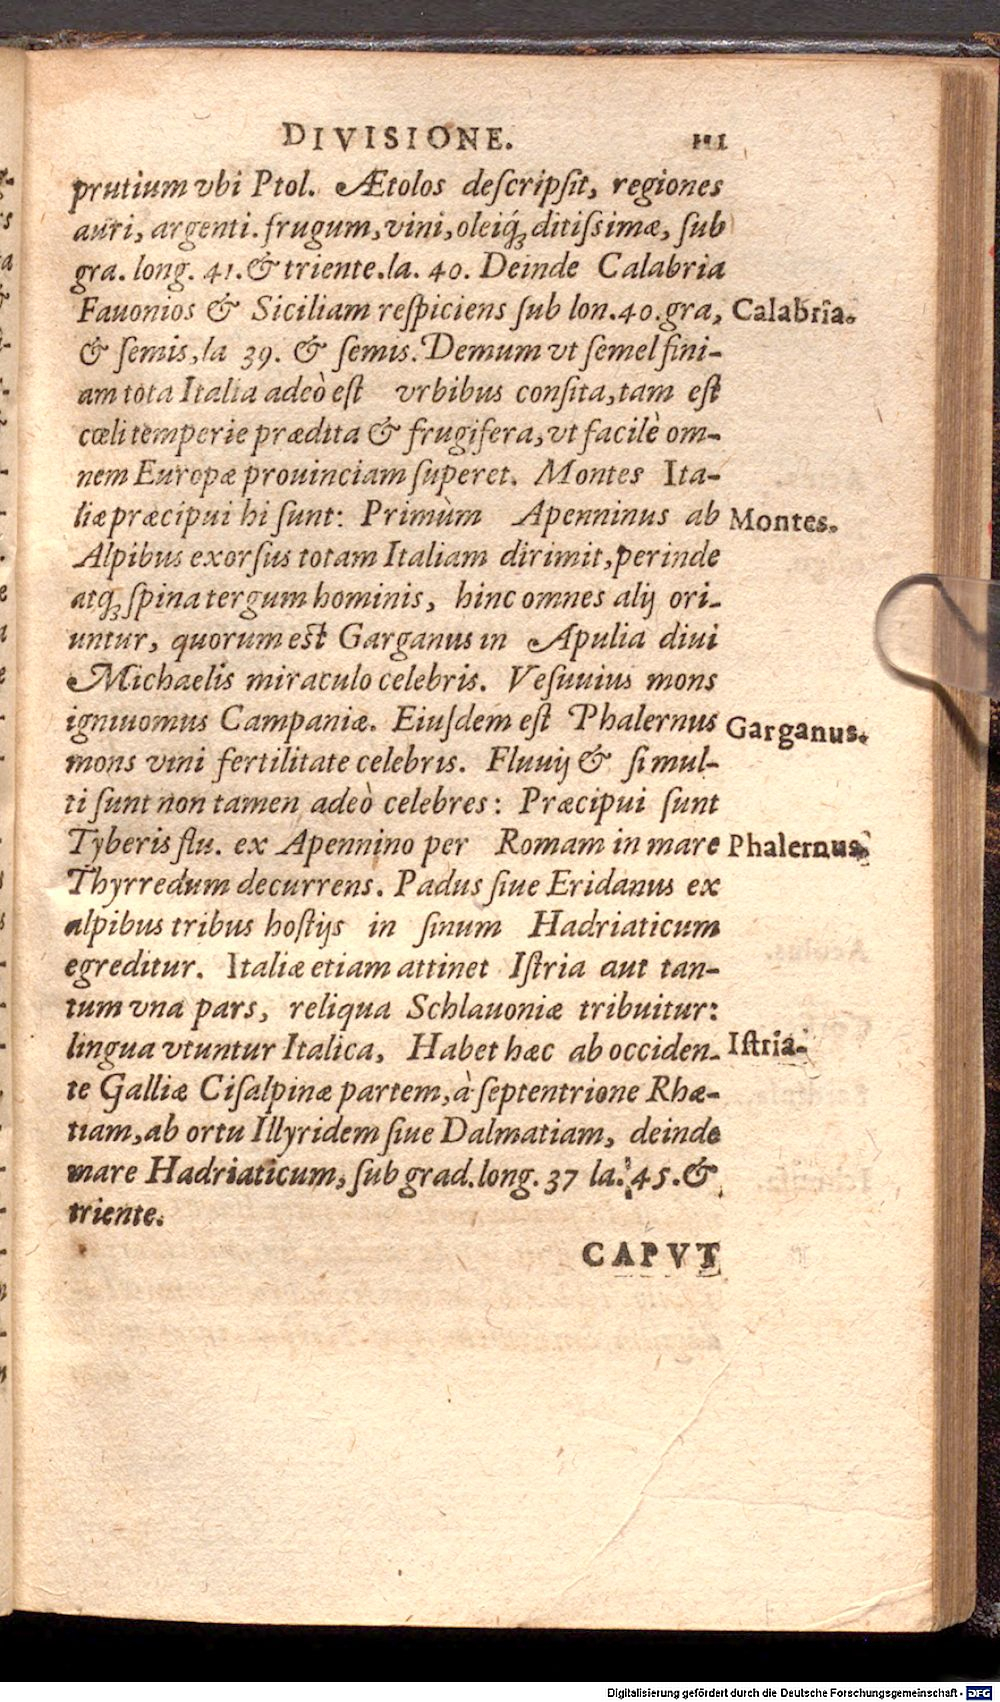 DIVISIONE. 111
prutium vbi Ptol. Ætolos deſcripſit, regiones
auri, argenti. frugum, vini, oleiq́ꝫ ditiſsimæ, ſub
gra. long. 41. & triente. la. 40. Deinde Calabria
Fauonios & Siciliam reſpiciens ſub lon. 40. gra, Calabria.
& ſemis, la 39. & ſemis. Demum vt ſemel fini-
am tota Italia adeò eſt vrbibus conſita, tam eſt
cœli temperie prædita & frugifera, vt facilè om-
nem Europæ prouinciam ſuperet. Montes Ita-
liæ præcipui hi ſunt: Primùm Apenninus ab Montes.
Alpibus exorſus totam Italiam dirimit, perinde
atqꝫ ſpina tergum hominis, hinc omnes alij ori-
untur, quorum est Garganus in Apulia diui
Michaelis miraculo celebris. Veſuuius mons
igniuomus Campaniæ. Eiuſdem eſt Phalernus Garganus.
mons vini fertilitate celebris. Fluuij & ſi mul-
ti ſunt non tamen adeò celebres: Præcipui ſunt
Tyberis flu. ex Apennino per Romam in mare Phalernus.
Thyrredum decurrens. Padus ſiue Eridanus ex
alpibus tribus hoſtijs in ſinum Hadriaticum
egreditur. Italiæ etiam attinet Iſtria aut tan-
tum vna pars, reliqua Schlauoniæ tribuitur:
lingua vtuntur Italica, Habet hæc ab occiden- Iſtria.
te Galliæ Ciſalpinæ partem, à ſeptentrione Rhæ-
tiam, ab ortu Illyridem ſiue Dalmatiam, deinde
mare Hadriaticum, ſub grad. long. 37 la. 45. &
triente.
CAPVT
Digitalisierung gefördert durch die Deutsche Forschungsgemeinschaft - DFG